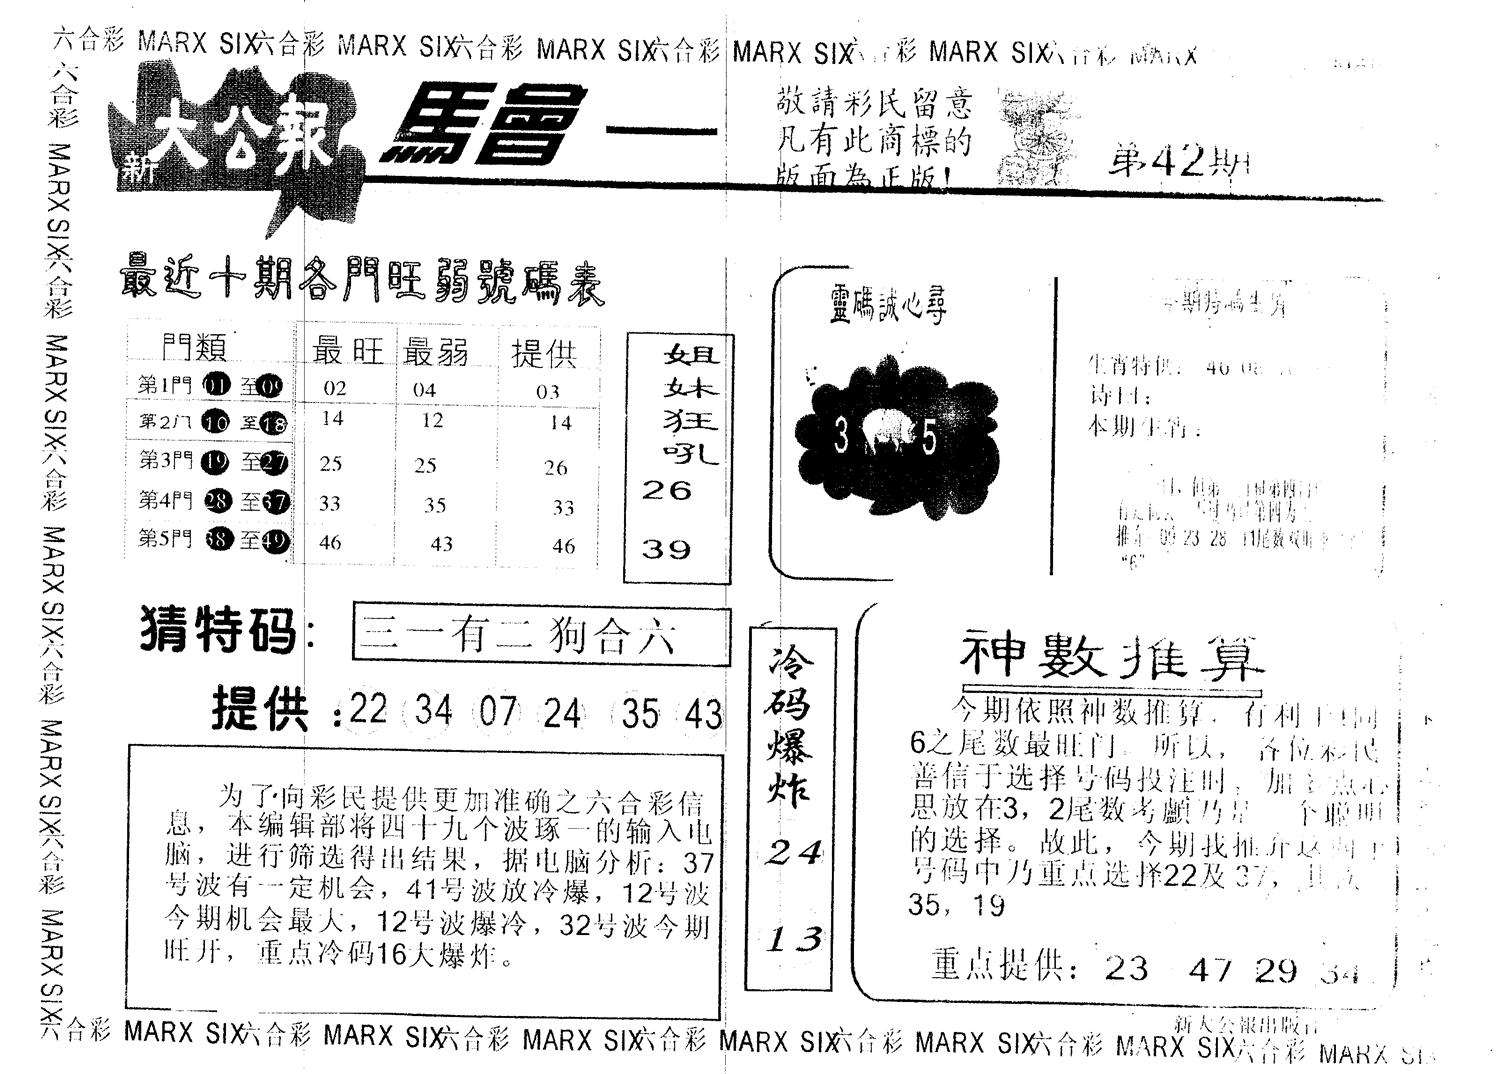 六合彩 MARX SIX六合彩 MARX SIX六合彩 MARX SIX六合彩 MARX SIX 彩 MARX SIX 合彩 MARX
六合彩 MARX SIX六合彩 MARX SIX六合彩 MARX SIX六合彩 MARX SIX六合彩 MARX SIX
新大公報
馬會一
敬請彩民留意
凡有此商標的
版面為正版!
第42期
最近十期各門旺弱號碼表
門類 最旺 最弱 提供
第1門 01 至 09 02 04 03
第2门 10 至 18 14 12 14
第3門 19 至 27 25 25 26
第4門 28 至 37 33 35 33
第5門 38 至 49 46 43 46
姐妹狂吼
26
39
靈碼誠心尋
3 5
期特碼生肖
生肖特供: 46 08
诗曰:
本期生肖:
推介 09 23 28 41尾数双
“6”
猜特码:
三一有二狗合六
提供:22 34 07 24 35 43
为了向彩民提供更加准确之六合彩信
息，本编辑部将四十九个波琢一的输入电
脑，进行筛选得出结果，据电脑分析：37
号波有一定机会，41号波放冷爆，12号波
今期机会最大，12号波爆冷，32号波今期
旺开，重点冷码16大爆炸。
冷码爆炸
24
13
神數推算
今期依照神数推算，有利于
6之尾数最旺门。所以，各位彩民
善信于选择号码投注时，加 点心
思放在3，2尾数考顱乃是 个聪明
的选择。故此，今期我推介这四个
号码中乃重点选择22及37，其次
35，19
重点提供：23 47 29 34
新大公報出版社
六合彩 MARX SIX六合彩 MARX SIX六合彩 MARX SIX六合彩 MARX SIX六合彩 MARX SIX六合彩 MARX SIX六合彩 MARX SI